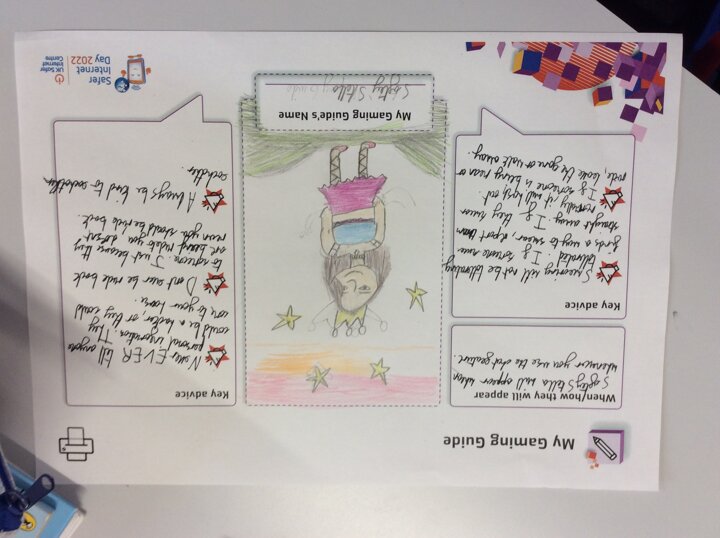 My Gaming Guide
When/how they will appear
Safety Stella will appear when
whenever you use the chat feature.
Key advice
Swearing will not be tolerated
tolerated. If someone
finds a way to swear, report them
straight away. If they swear
normally, it will # out.
If someone is being mean or
rude, leave the game or walk away.
My Gaming Guide's Name
Safety Stella
Key advice
Never EVER tell anyone
personal information. They
could be a hacker, or they could
come to your home.
Don't ever be rude back
to someone. Just because they
are being rude you doesn't
mean you should be rude back.
Always be kind to eachother,
eachother.
Safer
Internet
Day 2022
UK Safer
Internet
Centre